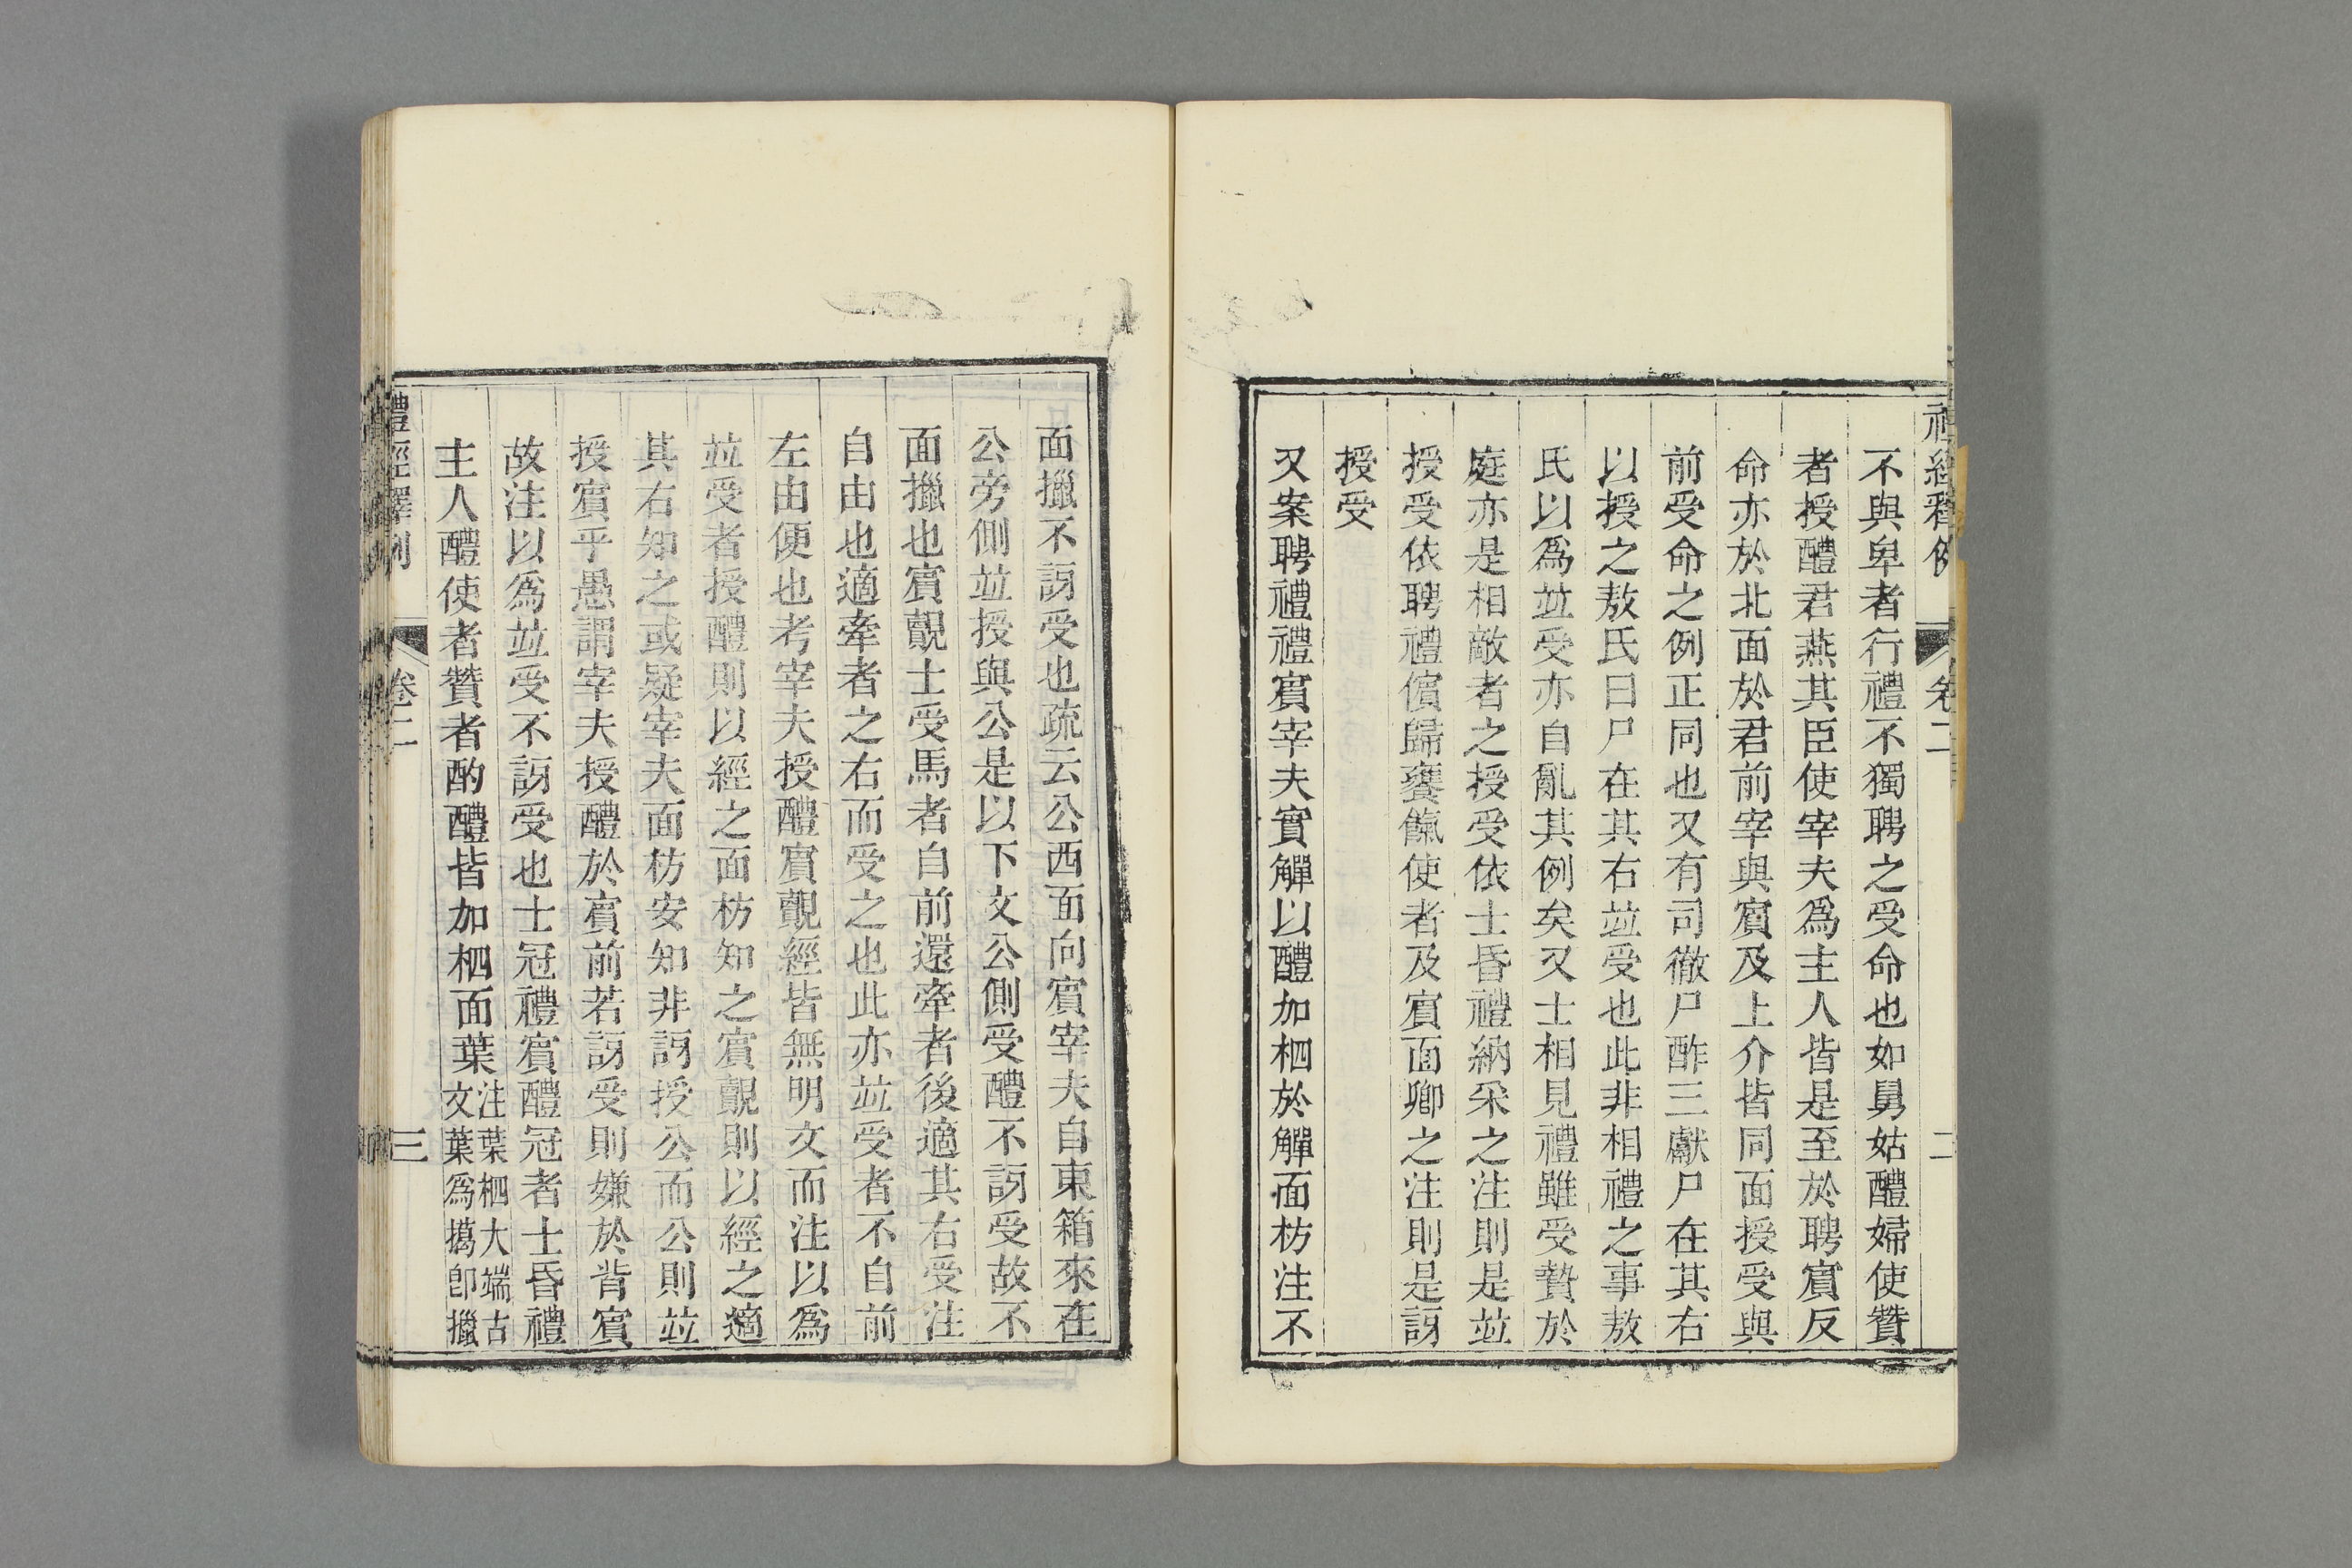 禮經釋例 卷二 二
不與卑者行禮不獨聘之受命也如舅姑醴婦使贊
者授醴君燕其臣使宰夫爲主人皆是至於聘賓反
命亦於北面於君前宰與賓及上介皆同面授受與
前受命之例正同也又有司徹尸酢三獻尸在其右
以授之敖氏曰尸在其右並受也此非相禮之事敖
氏以爲並受亦自亂其例矣又士相見禮雖受贄於
庭亦是相敵者之授受依士昏禮納采之注則是並
授受依聘禮儐歸饔餼使者及賓面卿之注則是訝
授受
又案聘禮禮賓宰夫實觶以醴加柶於觶面枋注不
面擸不訝受也疏云公西面向賓宰夫自東箱來在
公旁側並授與公是以下文公側受醴不訝受故不
面擸也賓覿士受馬者自前還牽者後適其右受注
自由也適牽者之右而受之也此亦並受者不自前
左由便也考宰夫授醴賓覿經皆無明文而注以爲
並受者授醴則以經之面枋知之賓覿則以經之適
其右知之或疑宰夫面枋安知非訝授公而公則並
授賓乎愚謂宰夫授醴於賓前若訝受則嫌於背賓
故注以爲並受不訝受也士冠禮賓醴冠者士昏禮
主人醴使者贊者酌醴皆加柶面葉注葉柶大端古文葉爲擖卽擸
禮經釋例 卷二 三